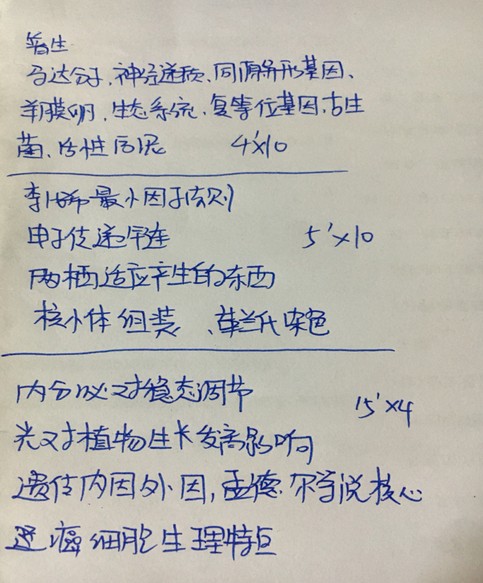 普生
马达分子、神经递质、同源异形基因、
羊膜卵、生态系统、复等位基因、古生
菌、活性污泥 4'×10
李比希最小因子法则
电子传递链 5'×10
两栖适应产生的东西
核小体组装、革兰氏染色
内分泌对稳态调节 15'×4
光对植物生长发育影响
遗传内因外因,孟德尔学说核心
癌细胞生理特点